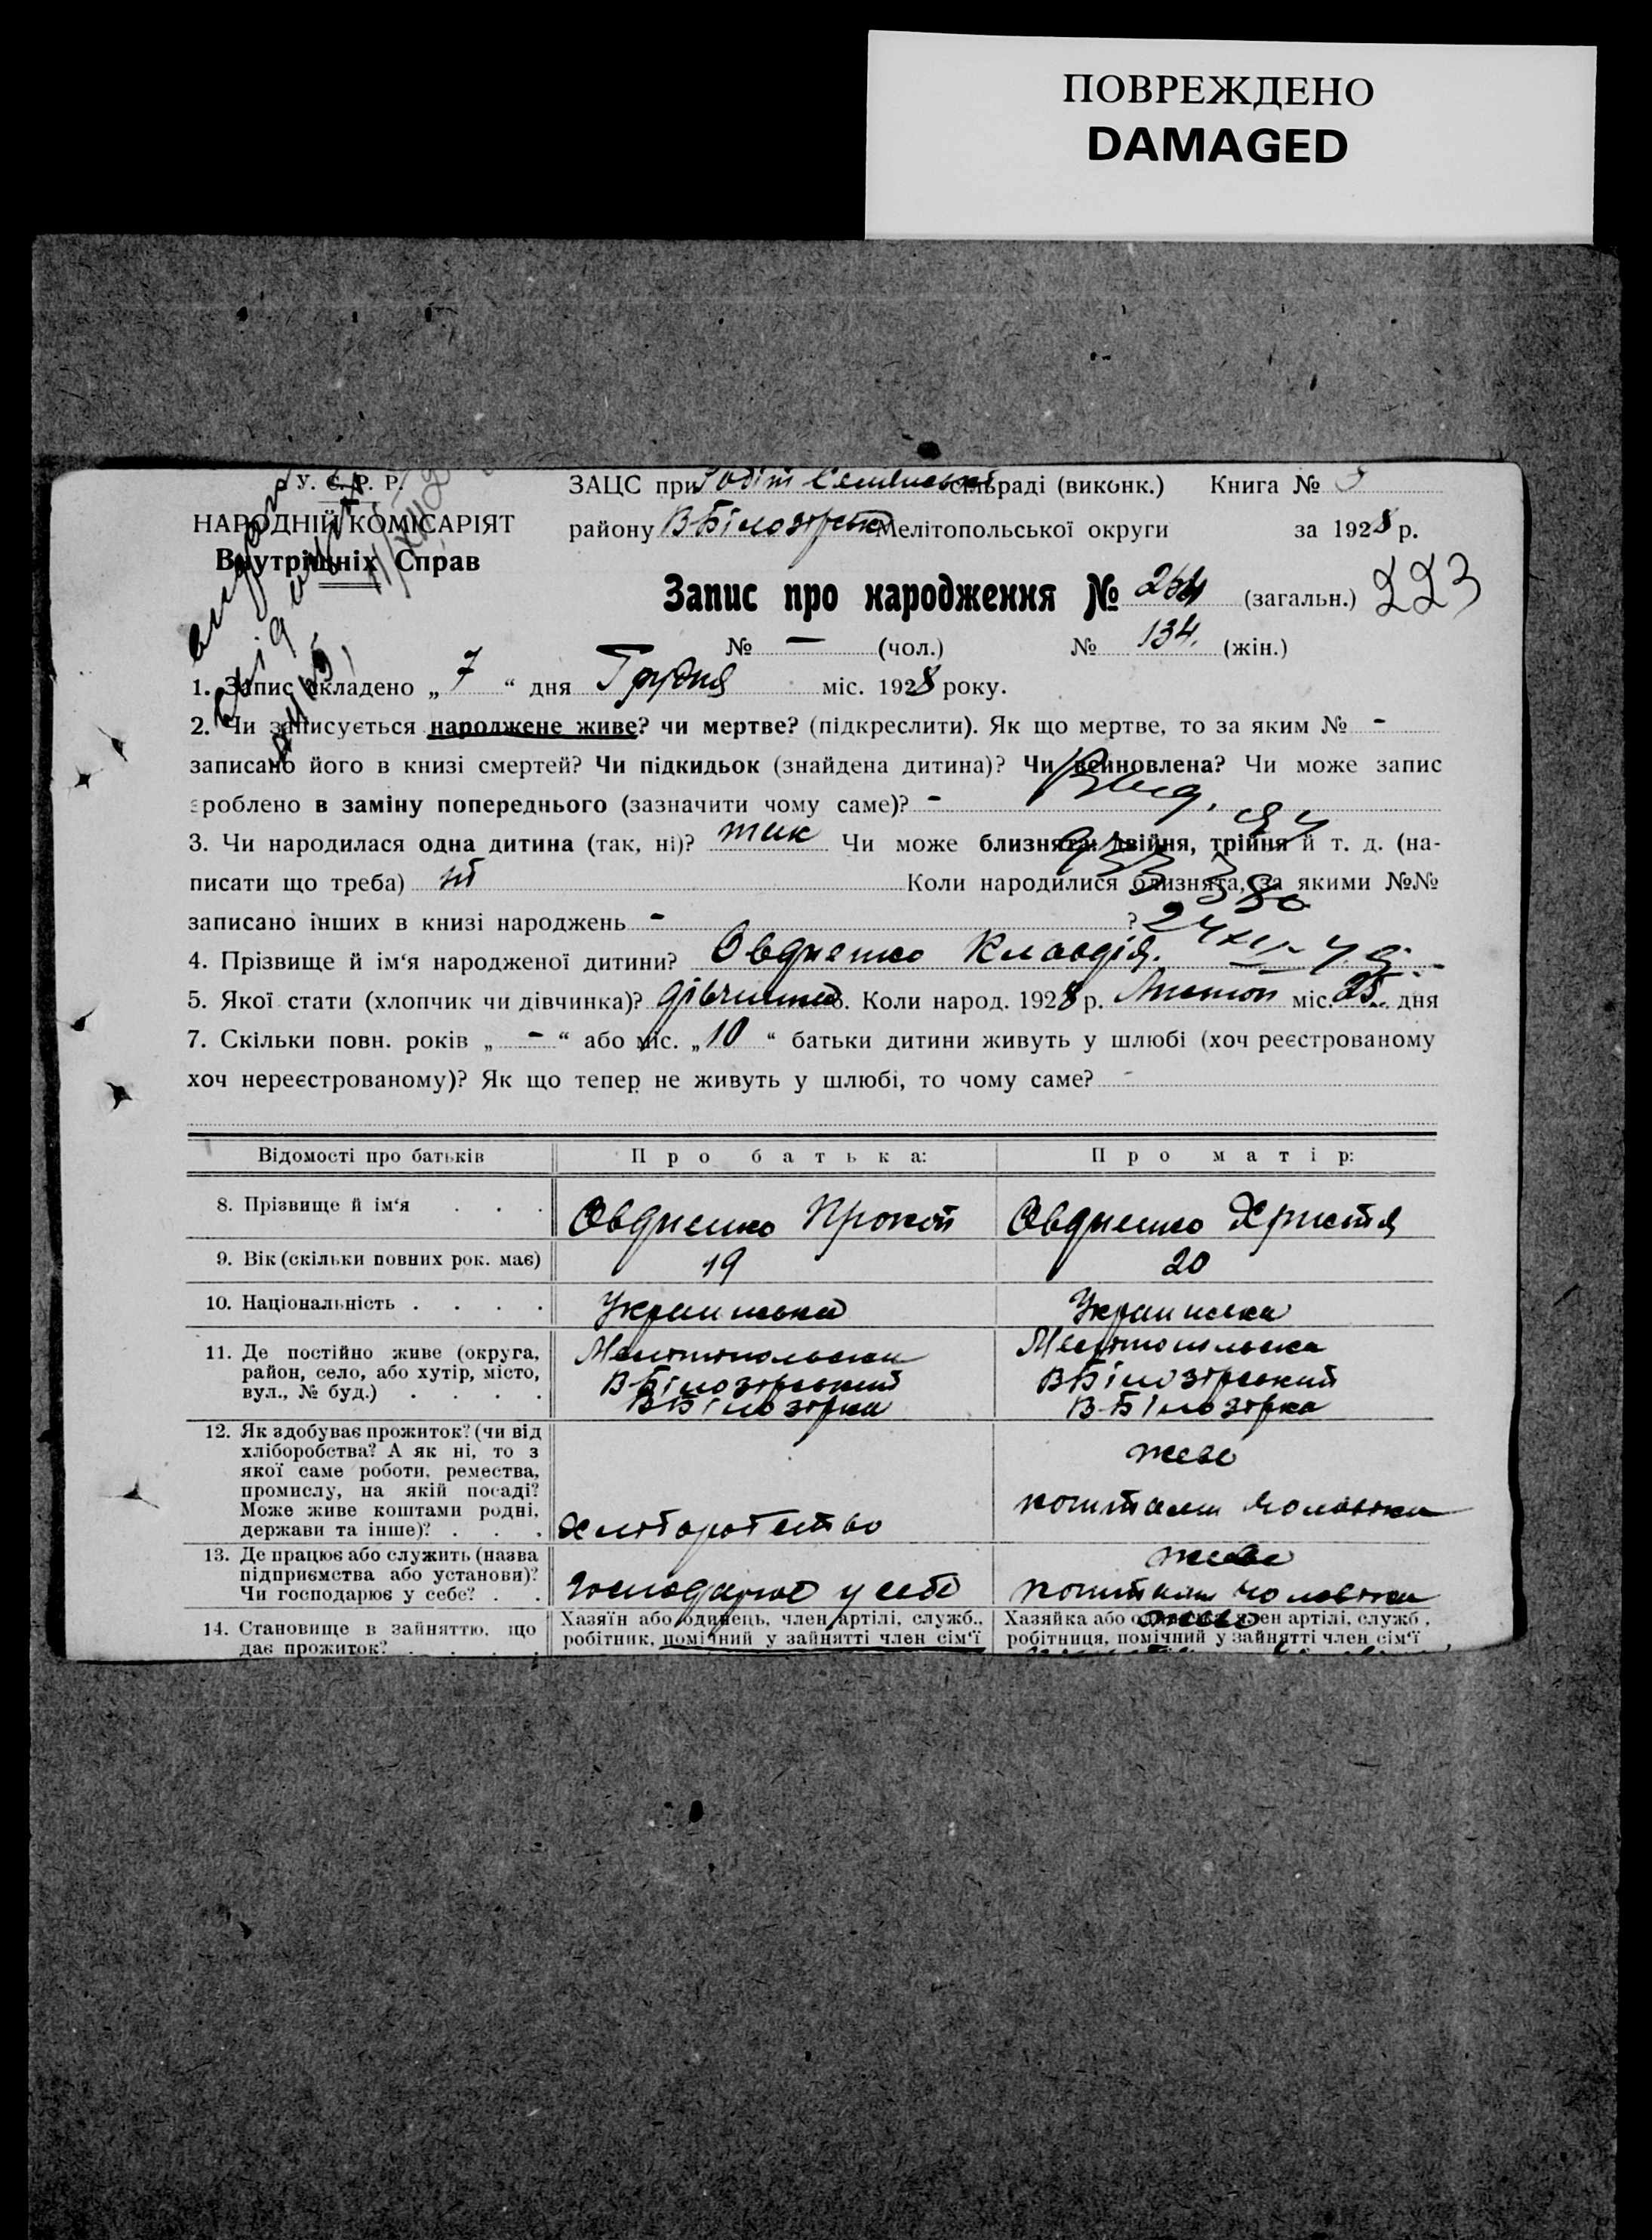 ПОВРЕЖДЕНО
DAMAGED
У. С. Р. Р.
НАРОДНІЙ КОМІСАРІЯТ
Внутрішніх Справ
ЗАЦС при сільраді (виконк.) Книга №
району В-Білозірськ Мелітопольської округи за 1928 р.
Запис про народження № 264 (загальн.) 223
№ — (чол.) № 134. (жін.)
1. Запис складено „ 7 “ дня Грудня міс. 1928 року.
2. Чи записується народжене живе? чи мертве? (підкреслити). Як що мертве, то за яким № -
записано його в книзі смертей? Чи підкидьок (знайдена дитина)? Чи всиновлена? Чи може запис
зроблено в заміну попереднього (зазначити чому саме)? -
3. Чи народилася одна дитина (так, ні)? так Чи може близнята: двійня, трійня й т. д. (на-
писати що треба) ні Коли народилися близнята, за якими №№
записано інших в книзі народжень - ?
4. Прізвище й ім‘я народженої дитини? Овдиенко Клавдія.
5. Якої стати (хлопчик чи дівчинка)? дівчинка 6. Коли народ. 1928 р. Листоп міс. 25 дня
7. Скільки повн. років „ - “ або міс. „ 10 “ батьки дитини живуть у шлюбі (хоч реєстрованому
хоч нереєстрованому)? Як що тепер не живуть у шлюбі, то чому саме? -
Відомості про батьків Про батька: Про матір:
8. Прізвище й ім‘я . . . Овдиенко Прокоп Овдиенко Христя
9. Вік (скільки повних рок. має) 19 20
10. Національність . . . . Украинська Украинська
11. Де постійно живе (округа,
район, село, або хутір, місто,
вул., № буд.) . . . .
Мелітопольська
В-Білозірський
В-Білозірка
Мелітопольска
В-Білозірський
В-Білозірка
12. Як здобуває прожиток? (чи від
хліборобства? А як ні, то з
якої саме роботи, ремества,
промислу, на якій посаді?
Може живе коштами родні,
держави та інше)? . . .
Хліборобство
живе
коштами чоловіка
13. Де працює або служить (назва
підприємства або установи)?
Чи господарює у себе? . .
господарює у себе
живе
коштами чоловіка
14. Становище в зайняттю, що
дає прожиток? . . . .
Хазяїн або одинець, член артілі, служб.,
робітник, помічний у зайнятті член сім‘ї
Хазяйка або одиначка, член артілі, служб.,
робітниця, помічний у зайнятті член сім‘ї
живе